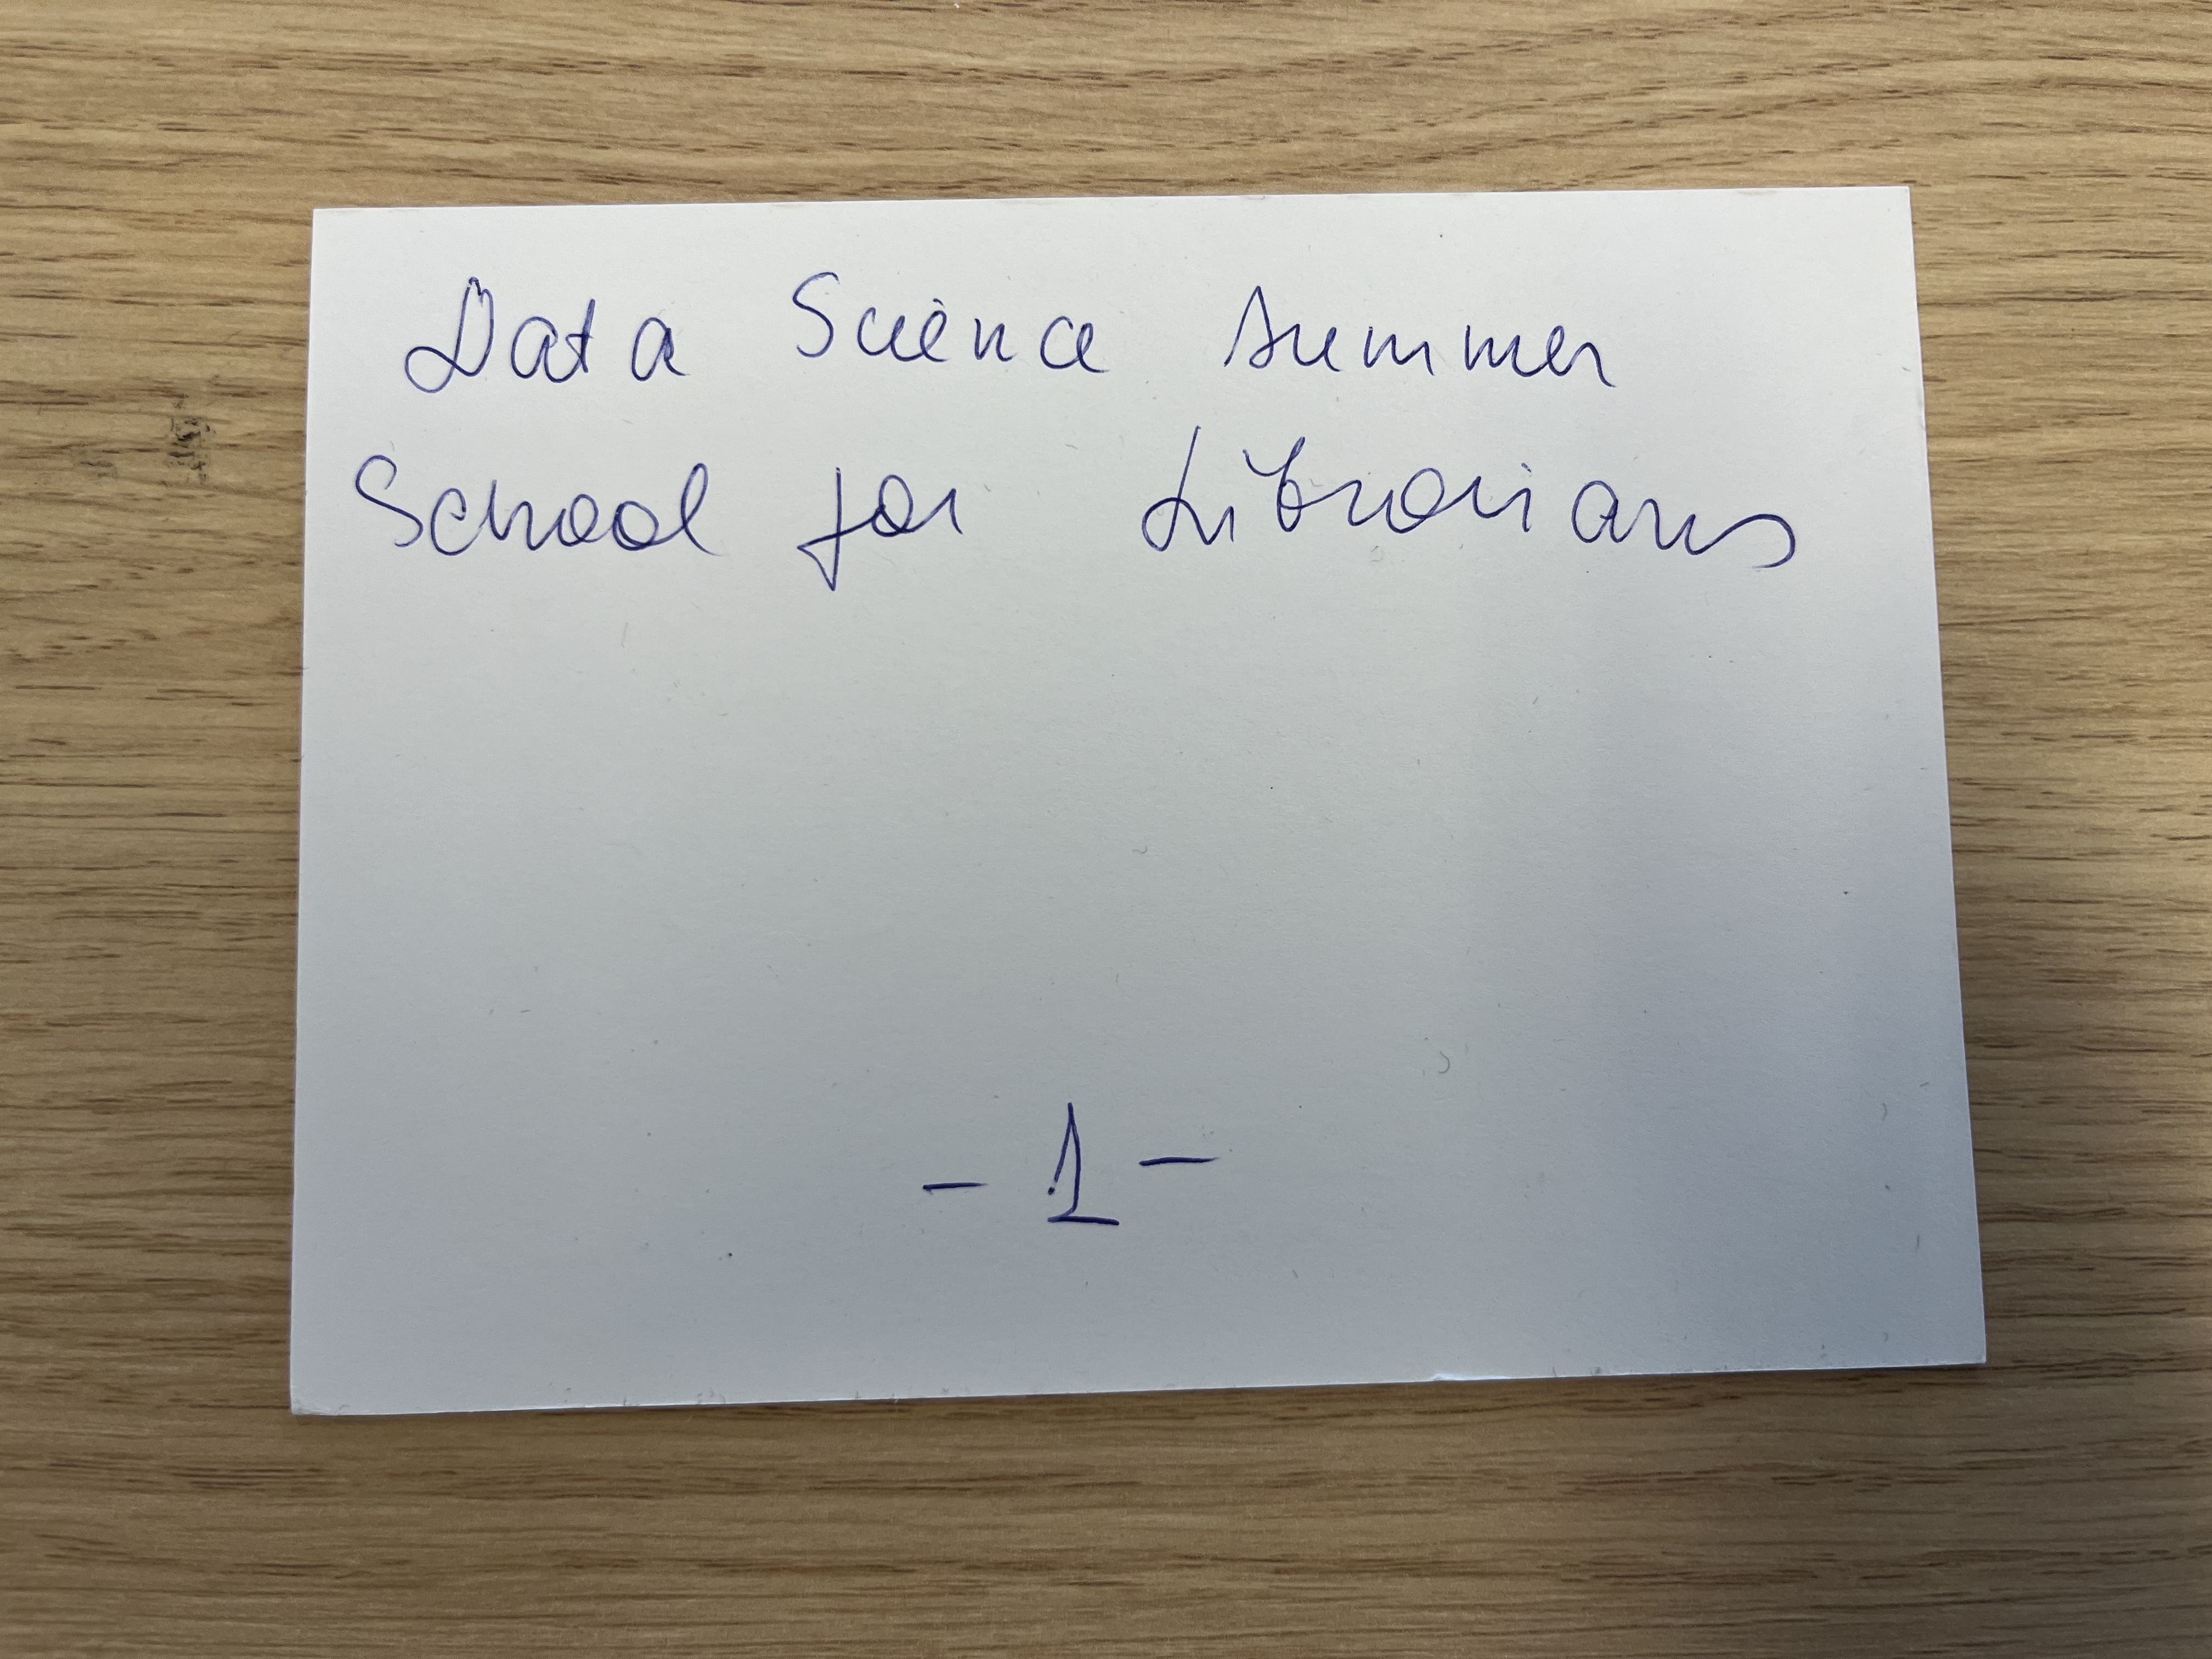 Data Science Summer
School for Librarians
- 1 -